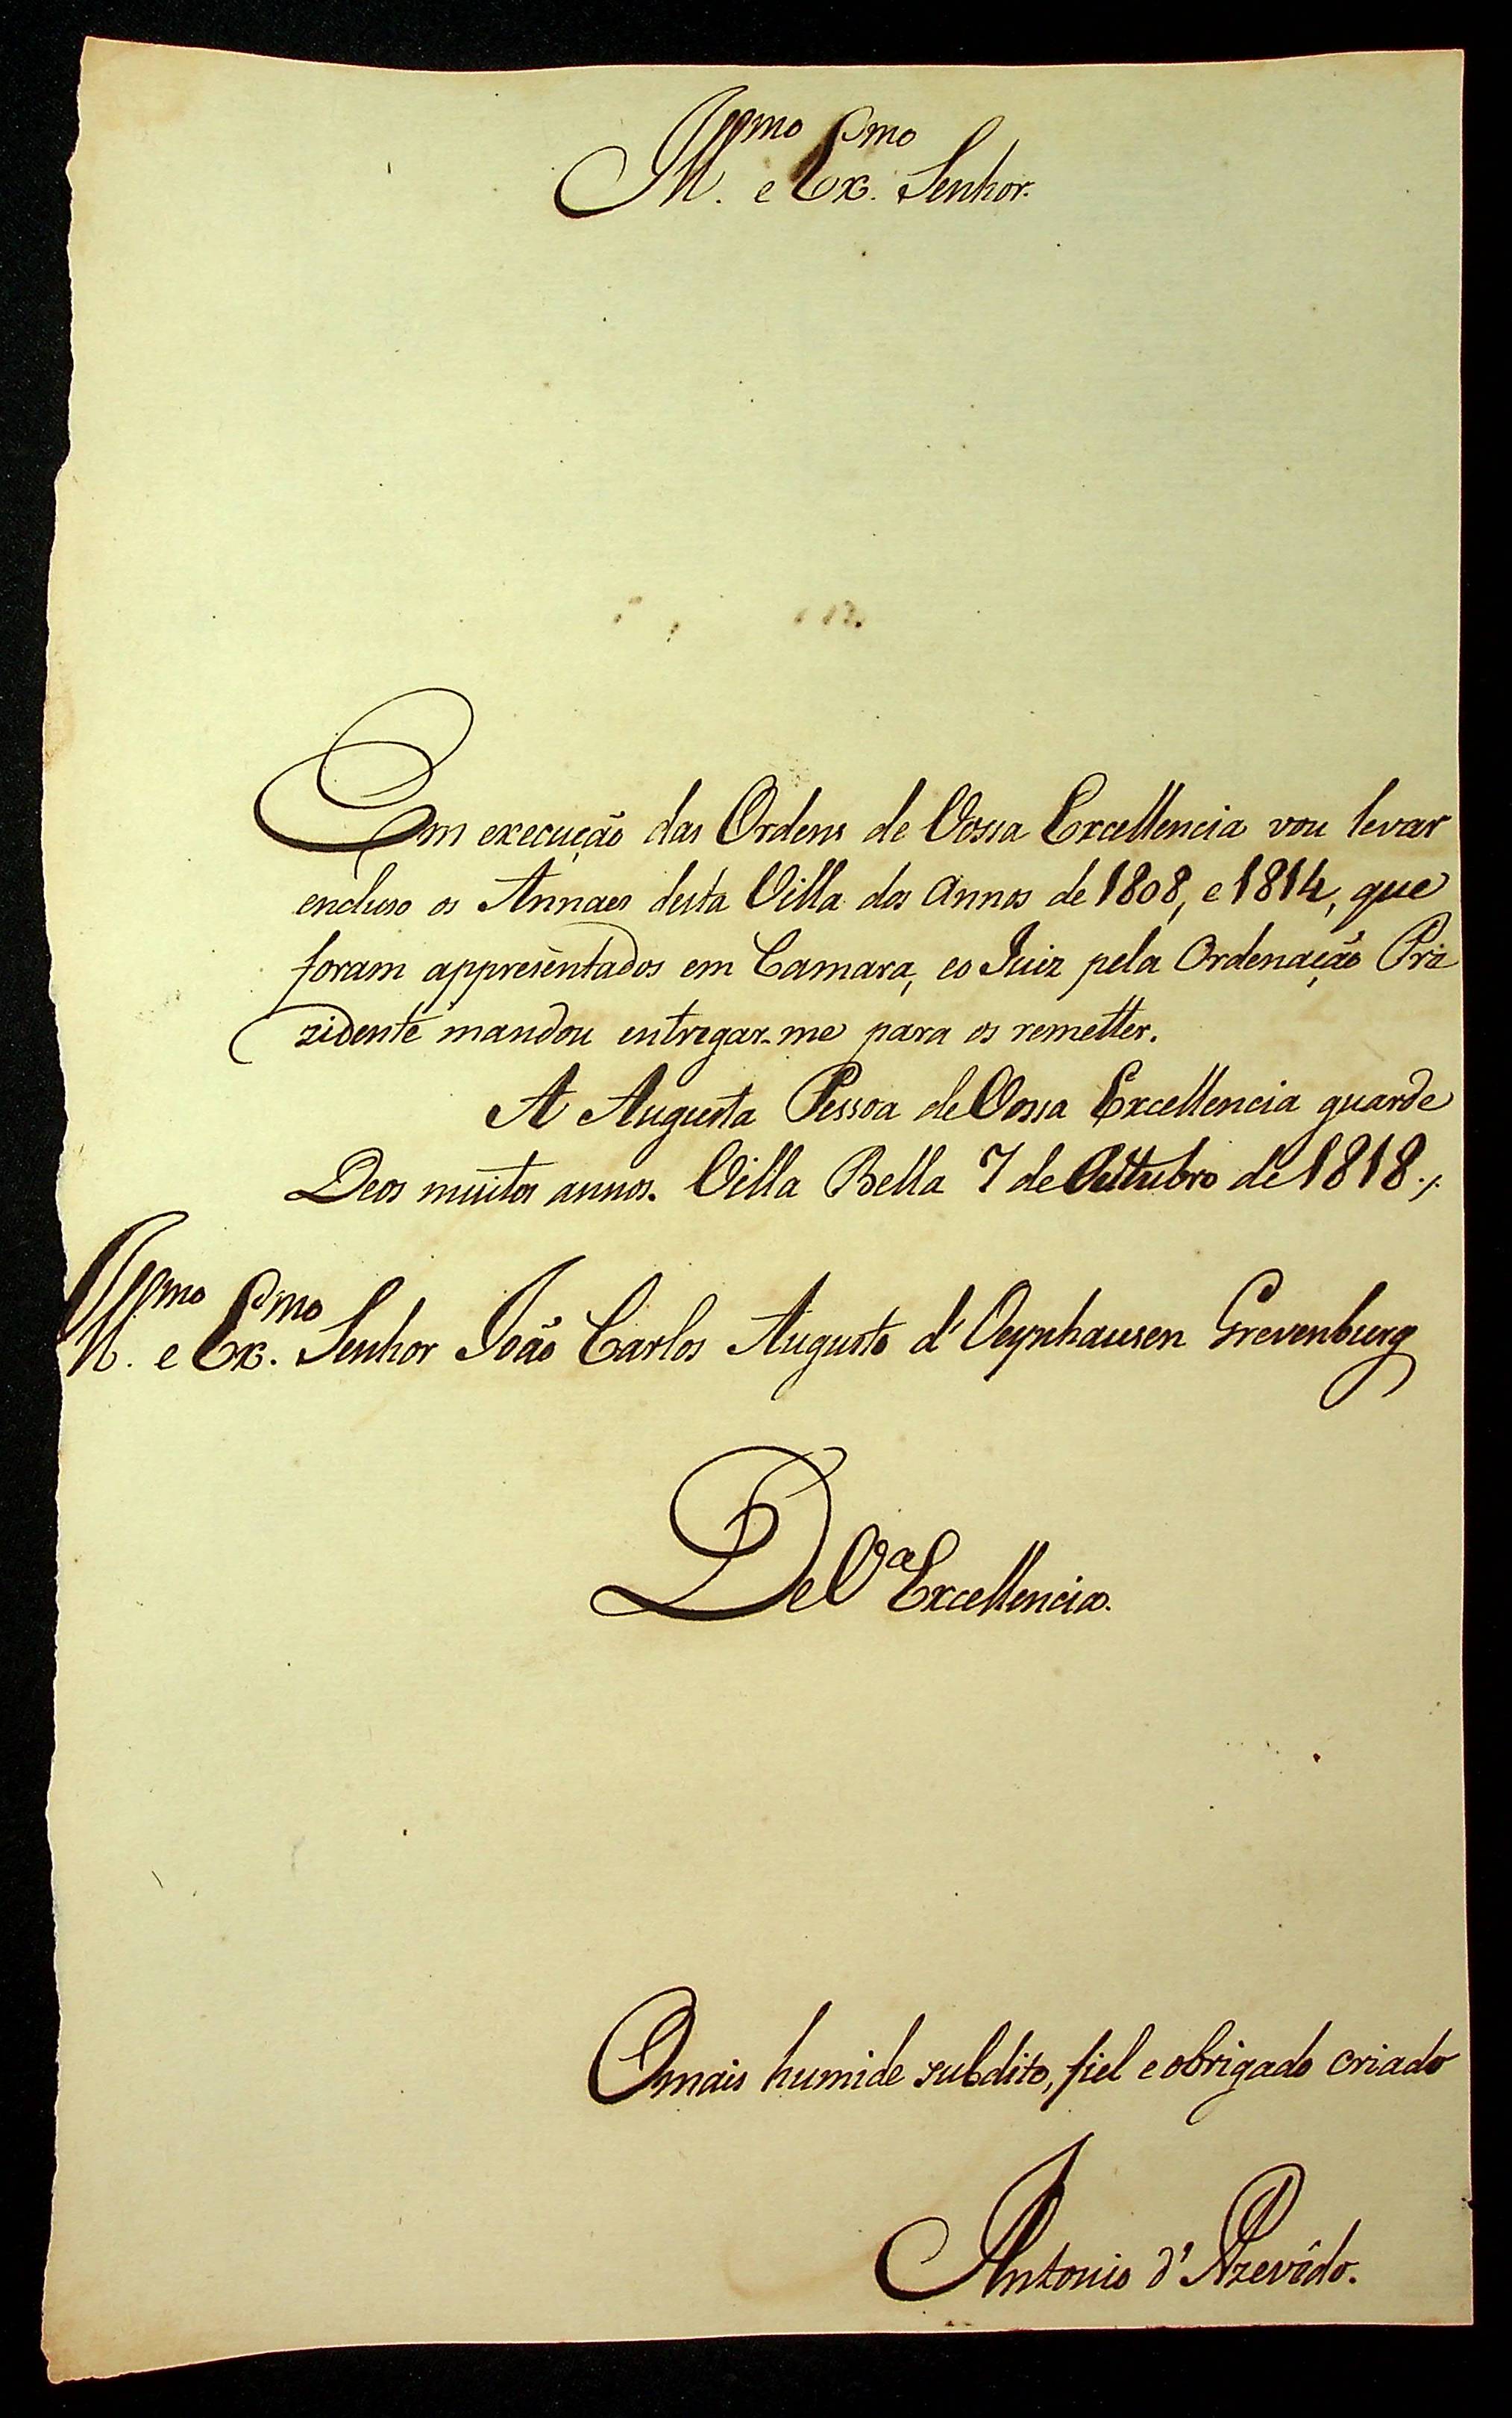 Ill.mo e Ex.mo Senhor.
Em execução das Ordens de Vossa Excellencia vou levar
encluso os Annaes desta Villa dos Annos de 1808, e 1814, que
foram appresèntados em Camara, eo Juiz pela Ordenação Pri
zidente mandou entregar-me para os remetter.
A Augusta Pessoa de Vossa Excellencia guarde
Deos muitos annos. Villa Bella 7 de Outubro de 1818./.
Ill.mo e Ex.mo Senhor João Carlos Augusto d'Oeynhausen Grevenburg
De V.a Excellencia.
Omais humide subdito, fiel e obrigado criado
Antonio d'Azevêdo.